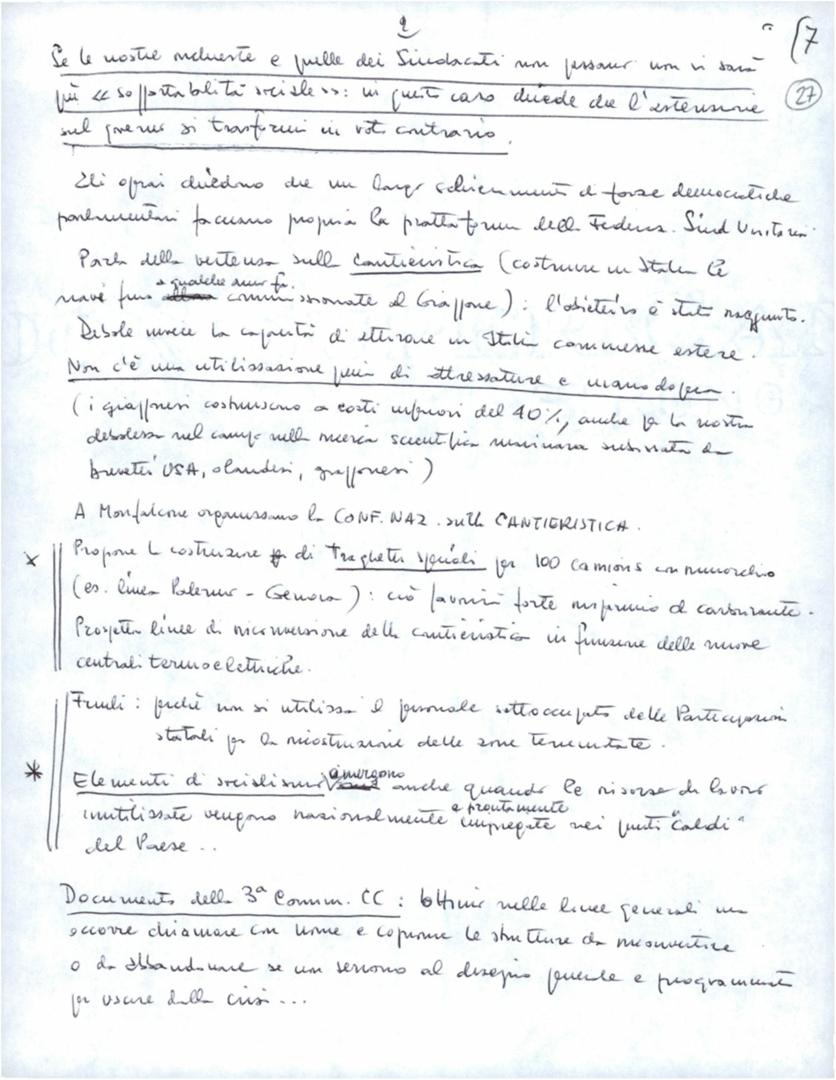 2
17
27
Se le nostre richieste e quelle dei Sindacati non passano non vi sarà
più << sopportabilità sociale >>: in questo caso chiede che l'astensione
sul governo si trasformi in voto contrario.
Gli operai chiedono che un largo schieramento di forze democratiche
parlamentari facciano propria la piattaforma della Federaz. Sind Unitaria.
Parla della vertenza sulla cantieristica (costruire in Italia le
navi fino a qualche anno fa commissionate al Giappone): l'obiettivo è stato raggiunto.
Debole invece la capacità di attirare in Italia commesse estere.
Non c'è una utilizzazione piena di attrezzature e manodopera.
(i giapponesi costruiscono a costi inferiori del 40%, anche per la nostra
debolezza nel campo nella ricerca scientifica marinara
brevetti USA, olandesi, giapponesi)
A Monfalcone organizzano la CONF. NAZ. sulla CANTIERISTICA.
Propone la costruzione di Traghetti speciali per 100 camions con rimorchio
(es. linea Palermo - Genova): ciò favorirà forte risparmio di carburante.
Prospetta linee di riconversione della cantieristica in funzione delle nuove
centrali termoelettriche.
Friuli: perchè non si utilizza il personale sottoccupato delle Partecipazioni
statali per la ricostruzione delle zone terremotate.
Elementi di socialismo emergono anche quando le risorse di lavoro
inutilizzate vengono nazionalmente e prontamente impiegate nei punti "caldi"
del Paese..
Documento della 3ª Comm. CC: ottimo nelle linee generali ma
occorre chiamare con nome e cognome le strutture da riconvertire
o da abbandonare se non servono al disegno generale e programmato
per uscire dalla crisi...